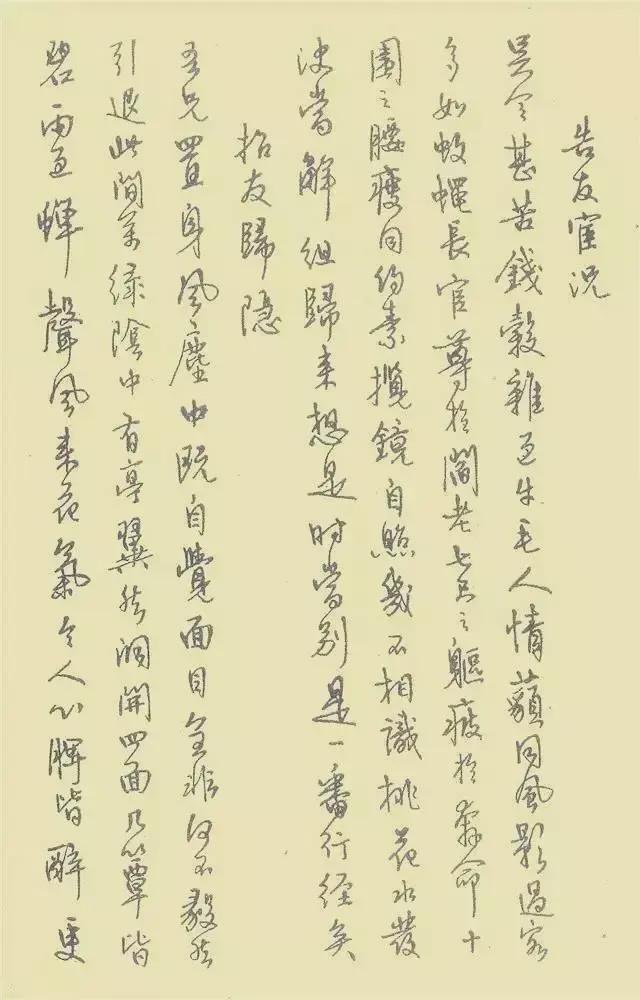 告友宦况
吴令甚苦錢穀雜過牛毛人情藐同風影過客
多如蚊蠅長官尊於閻老七尺之軀疲於奔命十
圍之腰瘦同约素攬鏡自照幾不相識桃花水發
決當解组歸来想是时當别是一番行徑矣
招友歸隐
吾兄置身風塵中既自覺面目全非何不毅然
引退此間萬绿陰中有亭翼然洞開四面几簟皆
碧雨過蟬聲風来花氣令人心脾皆醉更